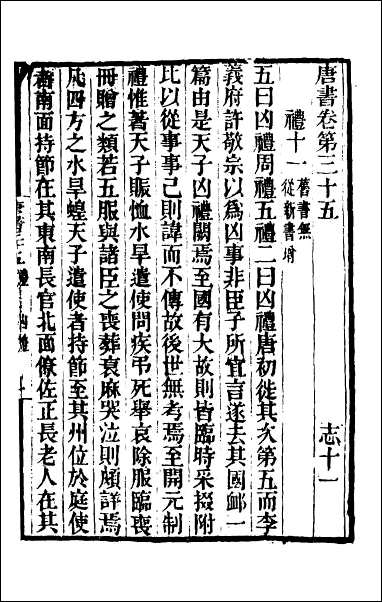 唐書卷第三十五 志十一
禮十一 舊書無從新書增
五曰凶禮周禮五禮二曰凶禮唐初徙其次第五而李
義府許敬宗以爲凶事非臣子所宜言遂去其國卹一
篇由是天子凶禮闕焉至國有大故則皆臨時采掇附
比以從事事已則諱而不傳故後世無考焉至開元制
禮惟著天子賑恤水旱遣使問疾弔死舉哀除服臨喪
冊贈之類若五服與諸臣之喪葬衰麻哭泣則頗詳焉
凡四方之水旱蝗天子遣使者持節至其州位於庭使
者南面持節在其東南長官北面僚佐正長老人在其